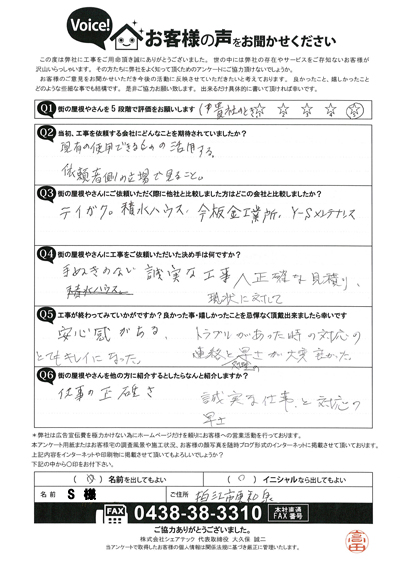 Voice!
お客様の声をお聞かせください
この度は弊社に工事をご用命頂き誠にありがとうございました。世の中には弊社の存在やサービスをご存知ないお客様が
沢山いらっしゃいます。その方たちに弊社をよく知って頂くためのアンケートにご協力頂けないでしょうか。
お客様のご意見をお聞かせいただき今後の活動に反映させていただきたいと考えております。良かったこと、嬉しかったこと
どのような些細な事でも結構です。是非ご協力お願い致します。出来るだけ具体的に書いて頂ければ幸いです。
Q1 街の屋根やさんを5段階で評価をお願いします ☆ ☆ ☆ ☆ ☆
Q2 当初、工事を依頼する会社にどんなことを期待されていましたか?
現有の使用できるものの活用する。
依頼者側の立場で見ること。
Q3 街の屋根やさんにご依頼いただく際に他社と比較しました方はどこの会社と比較しましたか?
テイガク。積水ハウス、今板金工業所、Y-Sメンテナンス
Q4 街の屋根やさんに工事をご依頼いただいた決め手は何ですか?
手ぬきのない 誠実な工事 正確な見積り、
積水ハウス 現状に対して
Q5 工事が終わってみていかがですか?良かった事・嬉しかったことを忌憚なく頂戴出来ましたら幸いです
安心感がある、 トラブルがあった時の対応の
とてもキレイになった。 連絡と 早さが大変良かった。
Q6 街の屋根やさんを他の方に紹介するとしたらなんと紹介しますか?
仕事の正確さ
誠実な仕事、と対応の
早さ
*弊社は広告宣伝費を極力かけない為にホームページだけを頼りにお客様への営業活動を行っております。
本アンケート用紙またはお客様宅の調査風景や施工状況、お客様の顔写真を随時ブログ形式のインターネットに掲載させて頂いております。
上記内容をインターネットや印刷物に掲載させて頂いてもよろしいでしょうか?
下記の中から○印をお付下さい。
( ○ ) 名前を出してもよい ( ○ ) イニシャルなら出してもよい
名前 S 様 ご住所 狛江市東和泉
FAX 0438-38-3310 本社直通 FAX番号
ご協力ありがとうございました。
株式会社シェアテック 代表取締役 大久保 誠二
当アンケートで取得したお客様の個人情報は関係法規に基づき厳正に管理いたします。